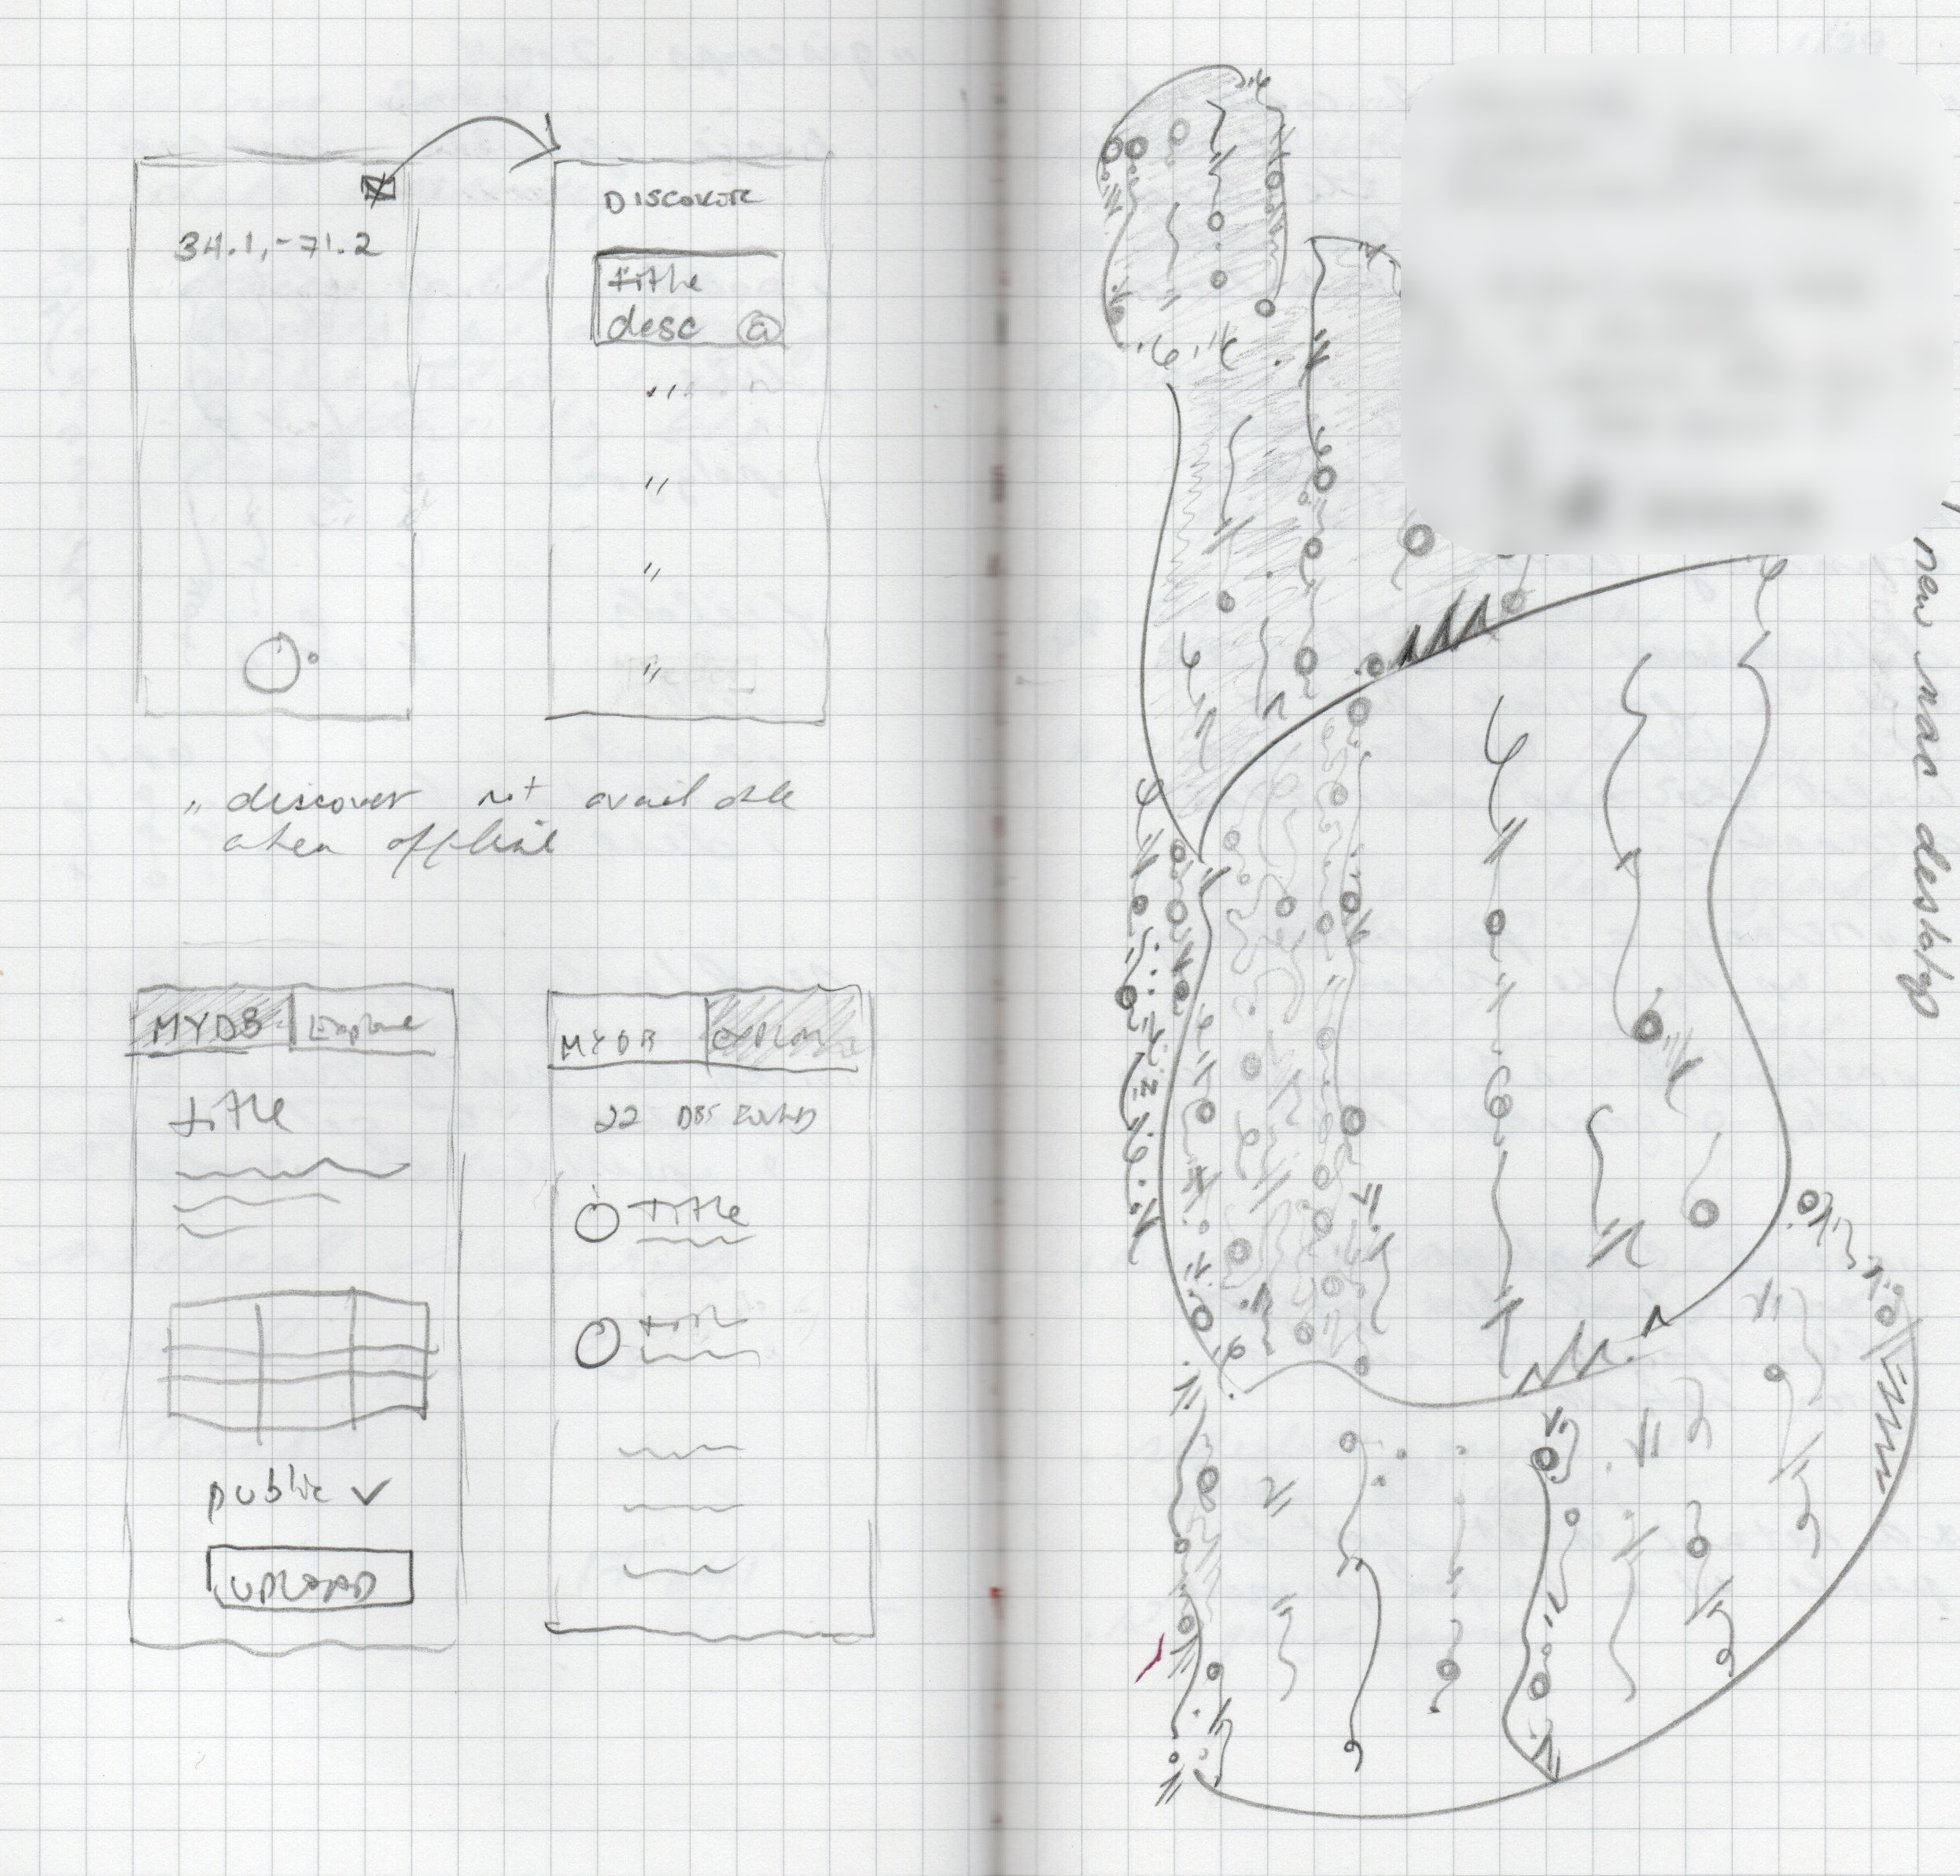 34.1, -71.2
DISCOVER
title
desc @
"
"
"
"
" discover not available
when offline
MYDB Explore
title
public ✓
UPLOAD
MYDB EXPLORE
22 DBS FOUND
title
title
new mac desktop